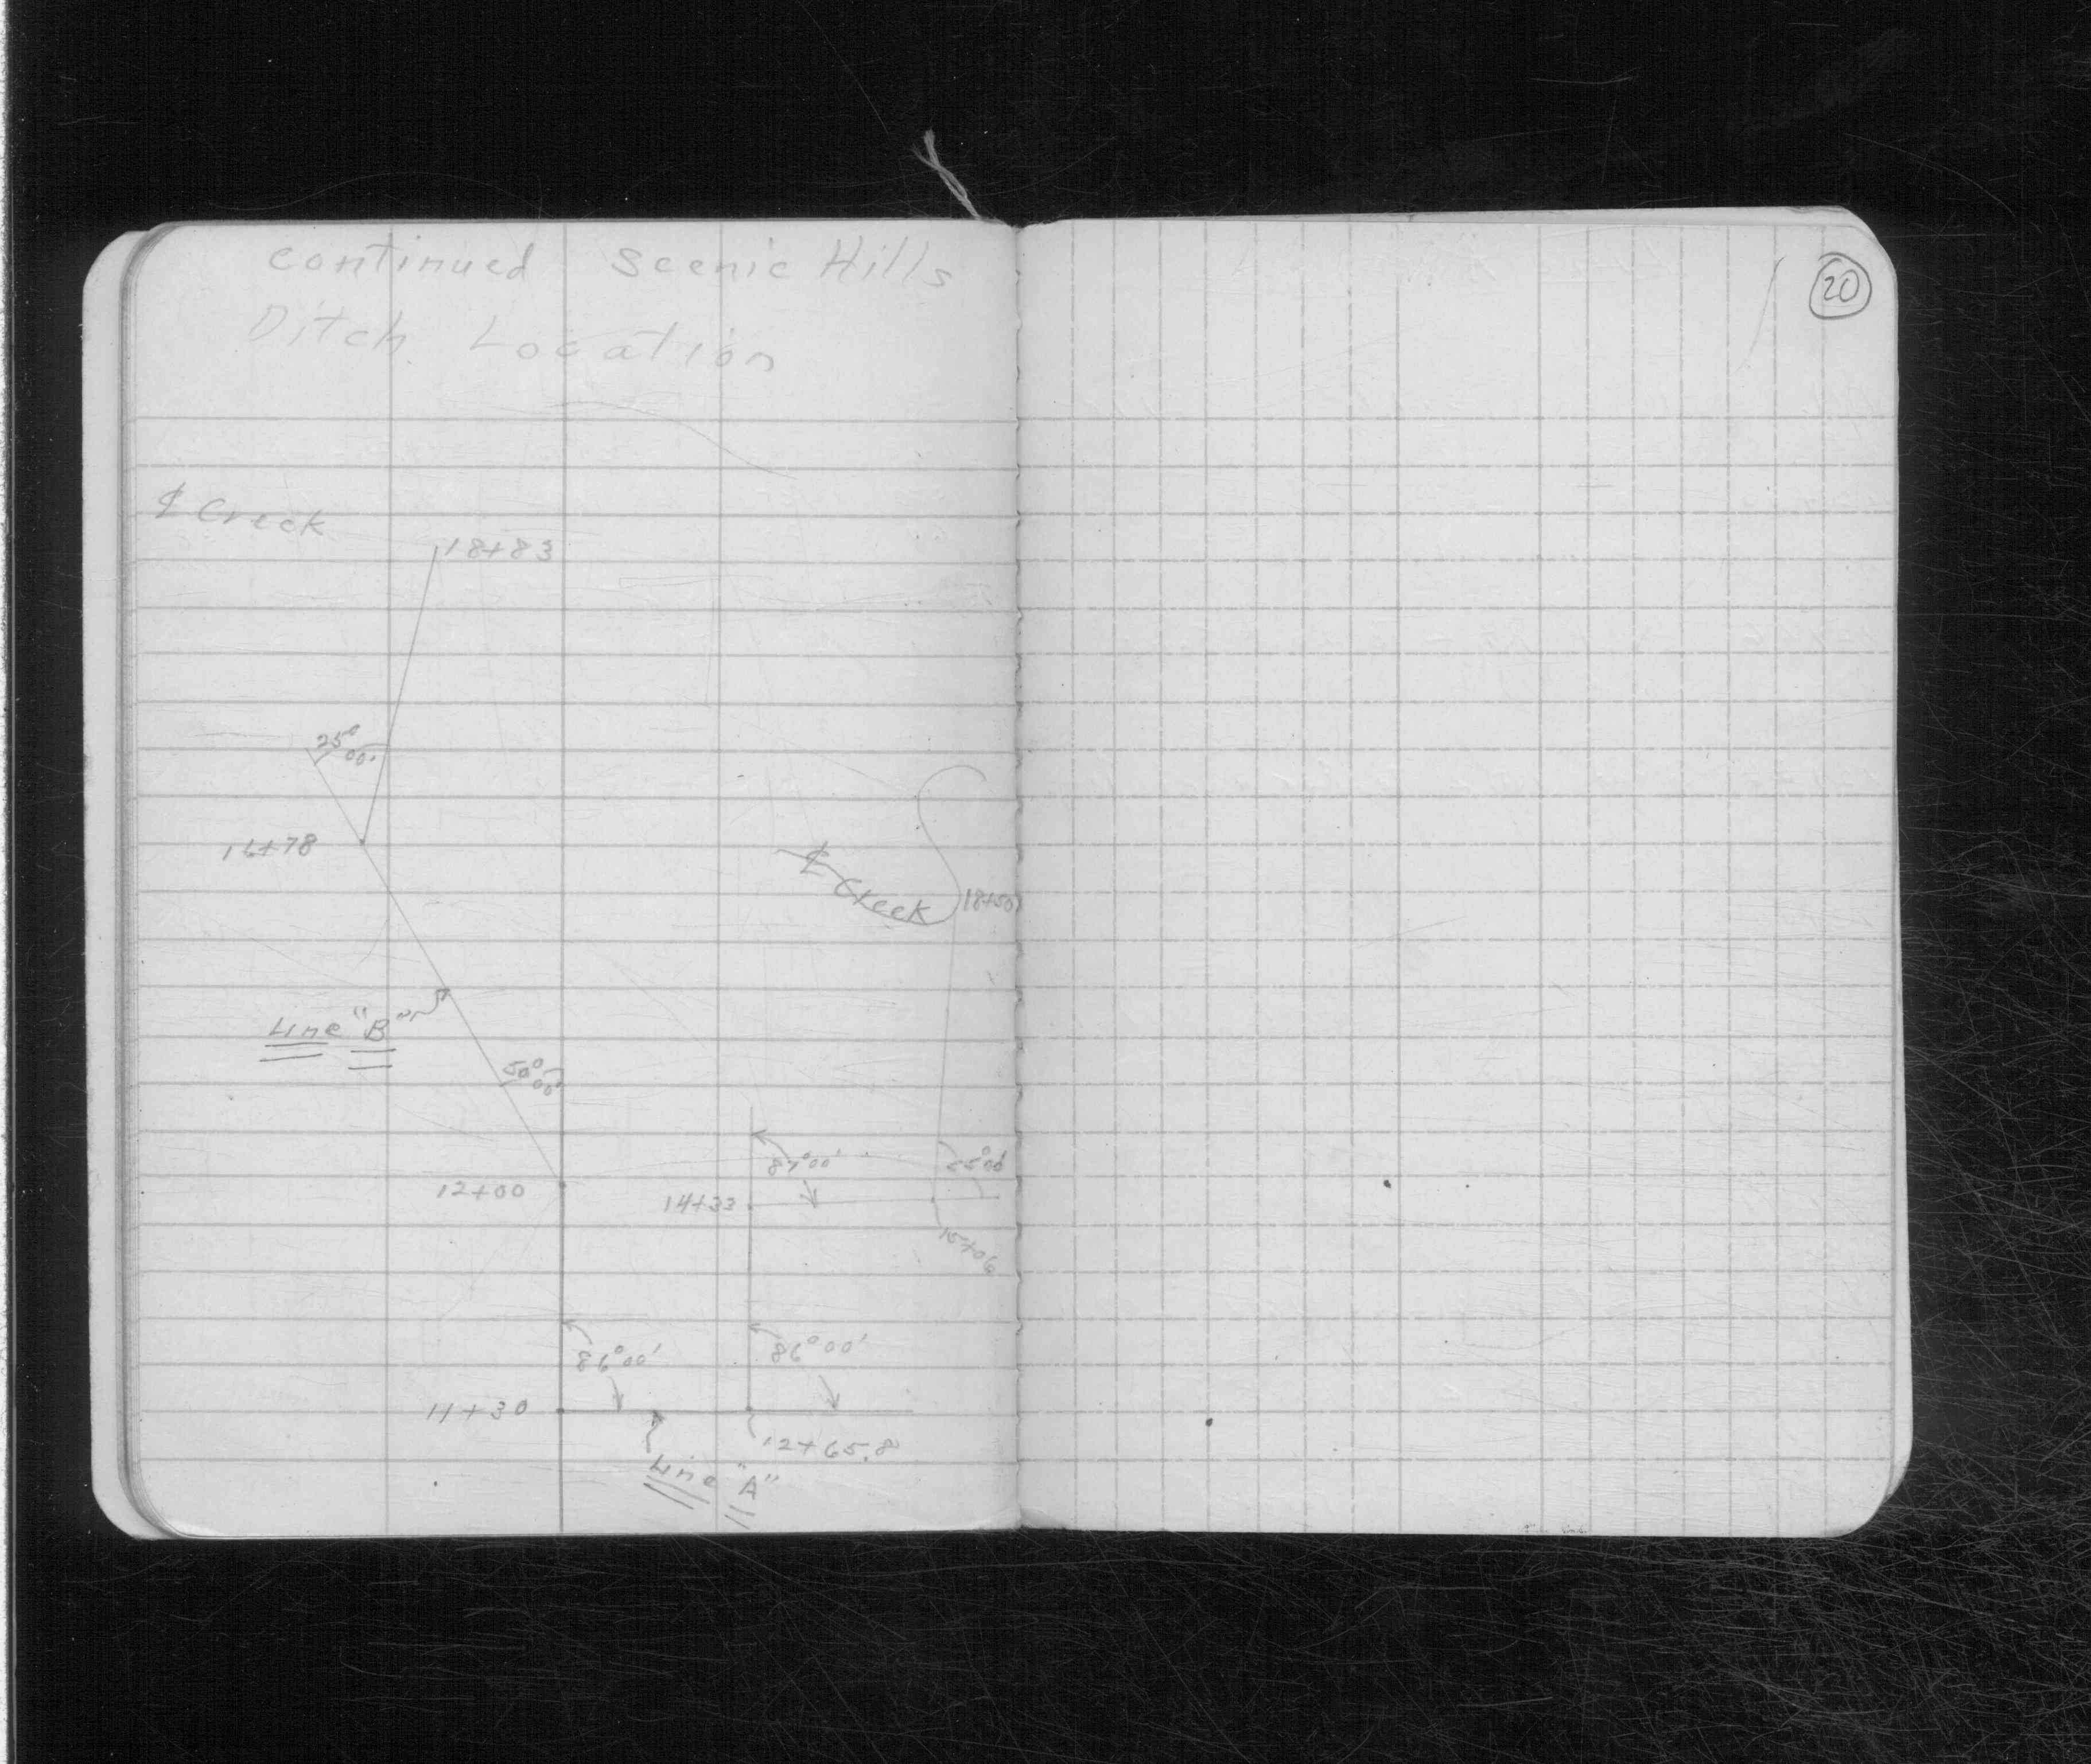 continued Scenic Hills
Ditch Location
20
℄ Creek
18+83
25°00'
16+78
℄ Creek
18+50
Line "B"
50°00'
87°00'
12+00
14+33
15+06
86°00'
86°00'
11+30
12+65.8
Line "A"